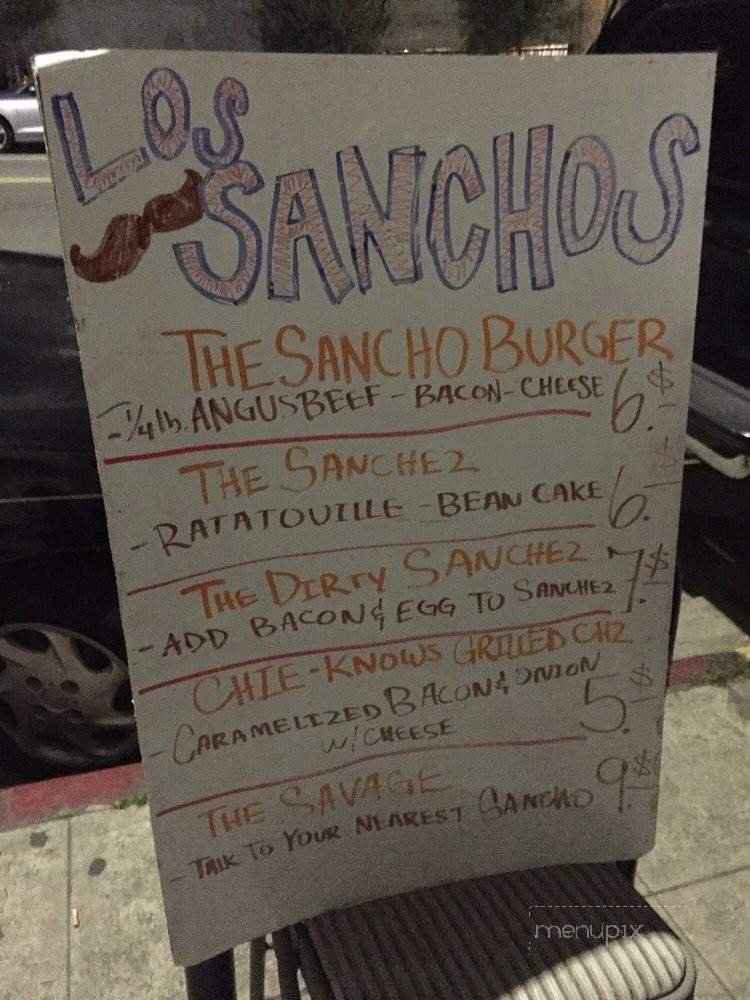 LOS
SANCHOS
THE SANCHO BURGER
-1/4 lb. ANGUS BEEF - BACON - CHEESE 6.$
THE SANCHEZ
-RATATOUILLE - BEAN CAKE 6.$
THE DIRTY SANCHEZ
-ADD BACON & EGG TO SANCHEZ 7.$
CHIE-KNOWS GRILLED CHZ
-CARAMELIZED BACON & ONION
W/ CHEESE 5.$
THE SAVAGE
- TALK TO YOUR NEAREST SANCHO 9.$
menupix